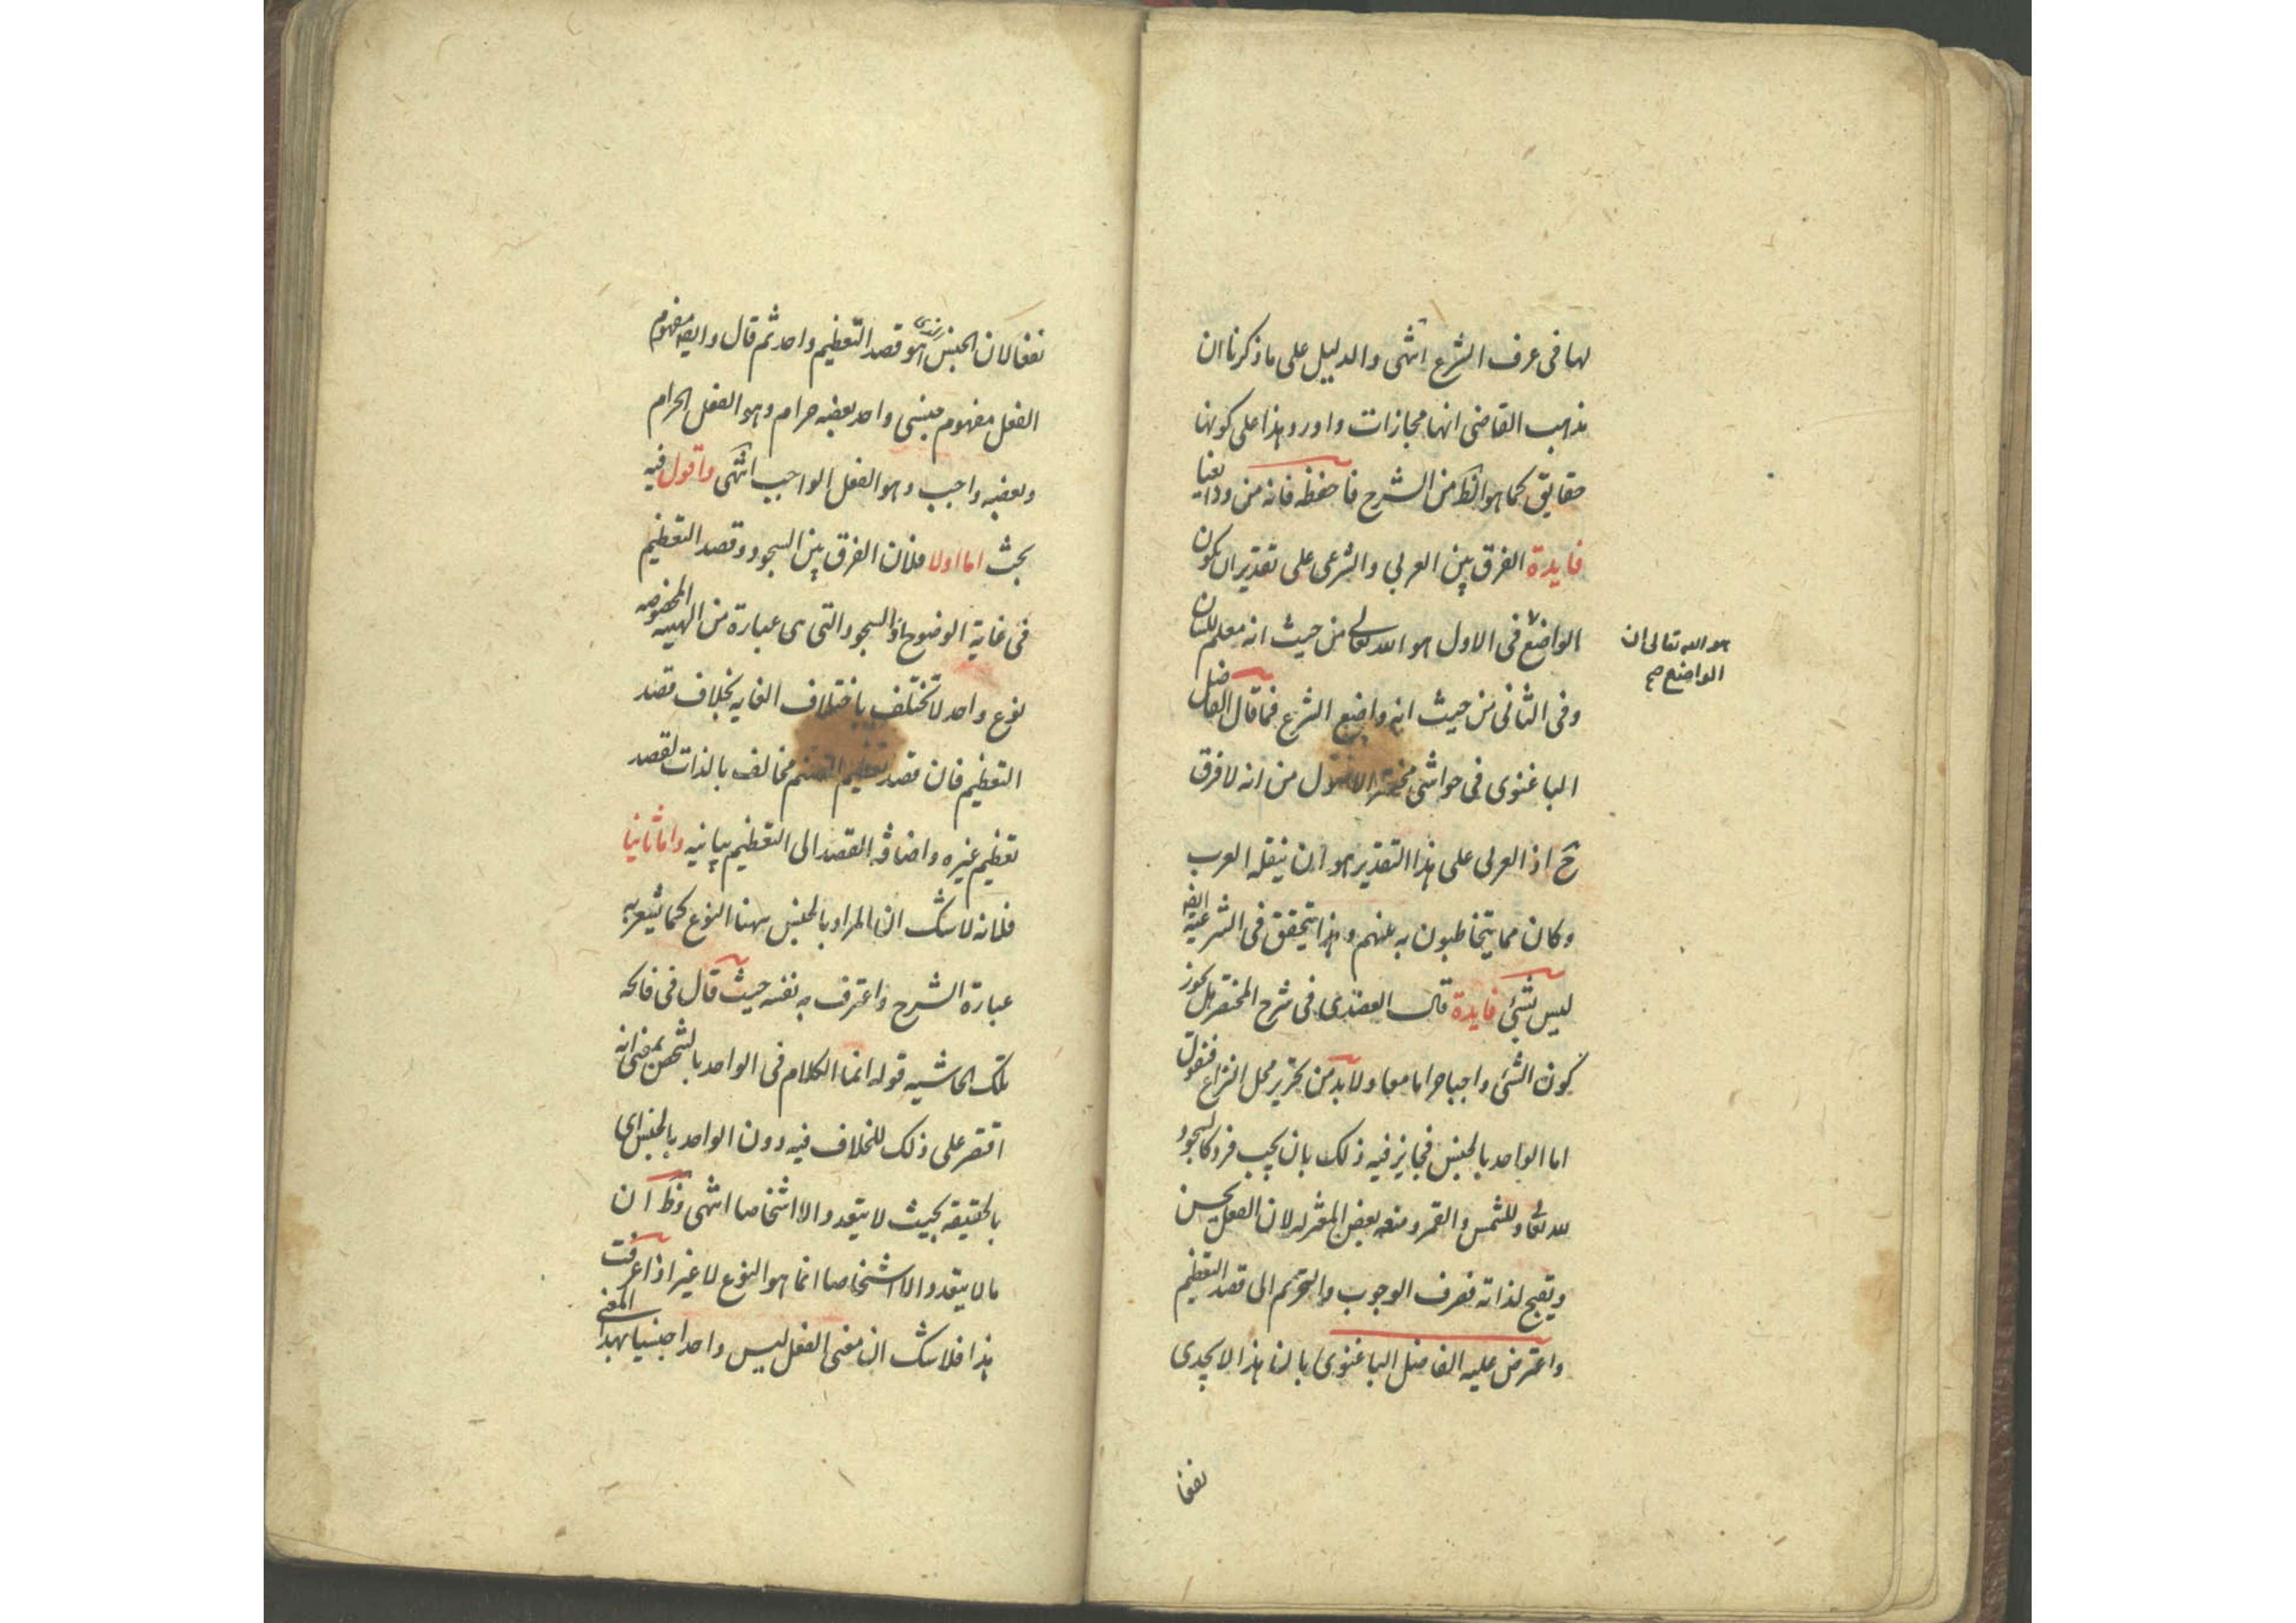 لها فى عرف الشرع انتهى والدليل على ما ذكرنا ان
مذهب القاضى انها مجازات واورد هذا على كونها
حقايق كما هو الظ من الشرح فاحفظه فانه من ودايعنا
فايدة الفرق بين العربى والشرعى على تقدير ان يكون
الواضع فى الاول هو الله تعالى من حيث انه معلم للسان
هو الله تعالى ان
الواضع صح
وفى الثانى من حيث انه واضع الشرع فما قال الفاضل
الباغنوى فى حواشى مختصر الاصول من انه لا فرق
ح اذ العربى على هذا التقدير هو ان ينقله العرب
وكان مما يتخاطبون به عنهم وهذا يتحقق فى الشرعية ايضه
ليس بشئ فايدة قال العضدى فى شرح المختصر هل يجوز
كون الشئ واجبا حراما معا ولا بد من تحرير محل النزاع فنقول
اما الواحد بالجنس فجايز فيه ذلك بان يجب فرد كالسجود
لله تعالى وللشمس والقمر ومنعه بعض المعتزله لان الفعل يحسن
ويقبح لذاته فصرف الوجوب والتحريم الى قصد التعظيم
واعترض عليه الفاضل الباغنوى بان هذا لا يجدى
نفعا
نفعا لان الجنس الذى هو قصد التعظيم واحد ثم قال وايضه مفهوم
الفعل مفهوم جنسى واحد بعضه حرام وهو الفعل الحرام
وبعضه واجب وهو الفعل الواجب انتهى واقول فيه
بحث اما اولا فلان الفرق بين السجود وقصد التعظيم
فى غاية الوضوح اذ السجود التى هى عبارة من الهيئه المخصوصه
نوع واحد لا تختلف باختلاف الغايه بخلاف قصد
التعظيم فان قصد تعظيم الصنم مخالف بالذات لقصد
تعظيم غيره واضافة القصد الى التعظيم بيانيه واما ثانيا
فلانه لا شك ان المراد بالجنس ههنا النوع كما يشعر به
عبارة الشرح واعترف به نفسه حيث قال فى فاتحه
تلك الحاشيه قوله انما الكلام فى الواحد بالشخص بمعنى انه
اقتصر على ذلك للخلاف فيه دون الواحد بالجنس اى
بالحقيقه بحيث لا يتعدد الا اشخاصا انتهى وظ ان
ما لا يتعدد الا اشخاصا انما هو النوع لا غير اذا عرفت
هذا فلا شك ان معنى الفعل ليس واحدا جنسيا بهذا المعنى